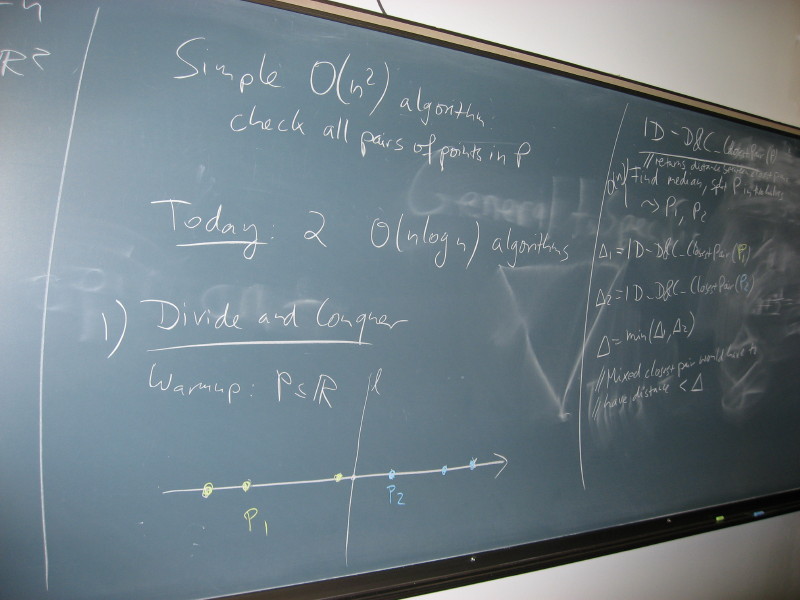 R²
Simple O(n²) algorithm:
check all pairs of points in P
Today: 2 O(n log n) algorithms
1) Divide and Conquer
Warmup: P ⊆ R
l
P₁
P₂
1D-D&C-ClosestPair(P)
// returns distance
Find median, split P in two halves
⇝ P₁, P₂
Δ₁ = 1D-D&C-ClosestPair(P₁)
Δ₂ = 1D-D&C-ClosestPair(P₂)
Δ = min(Δ₁, Δ₂)
// Mixed closest pair would have to
// have distance < Δ